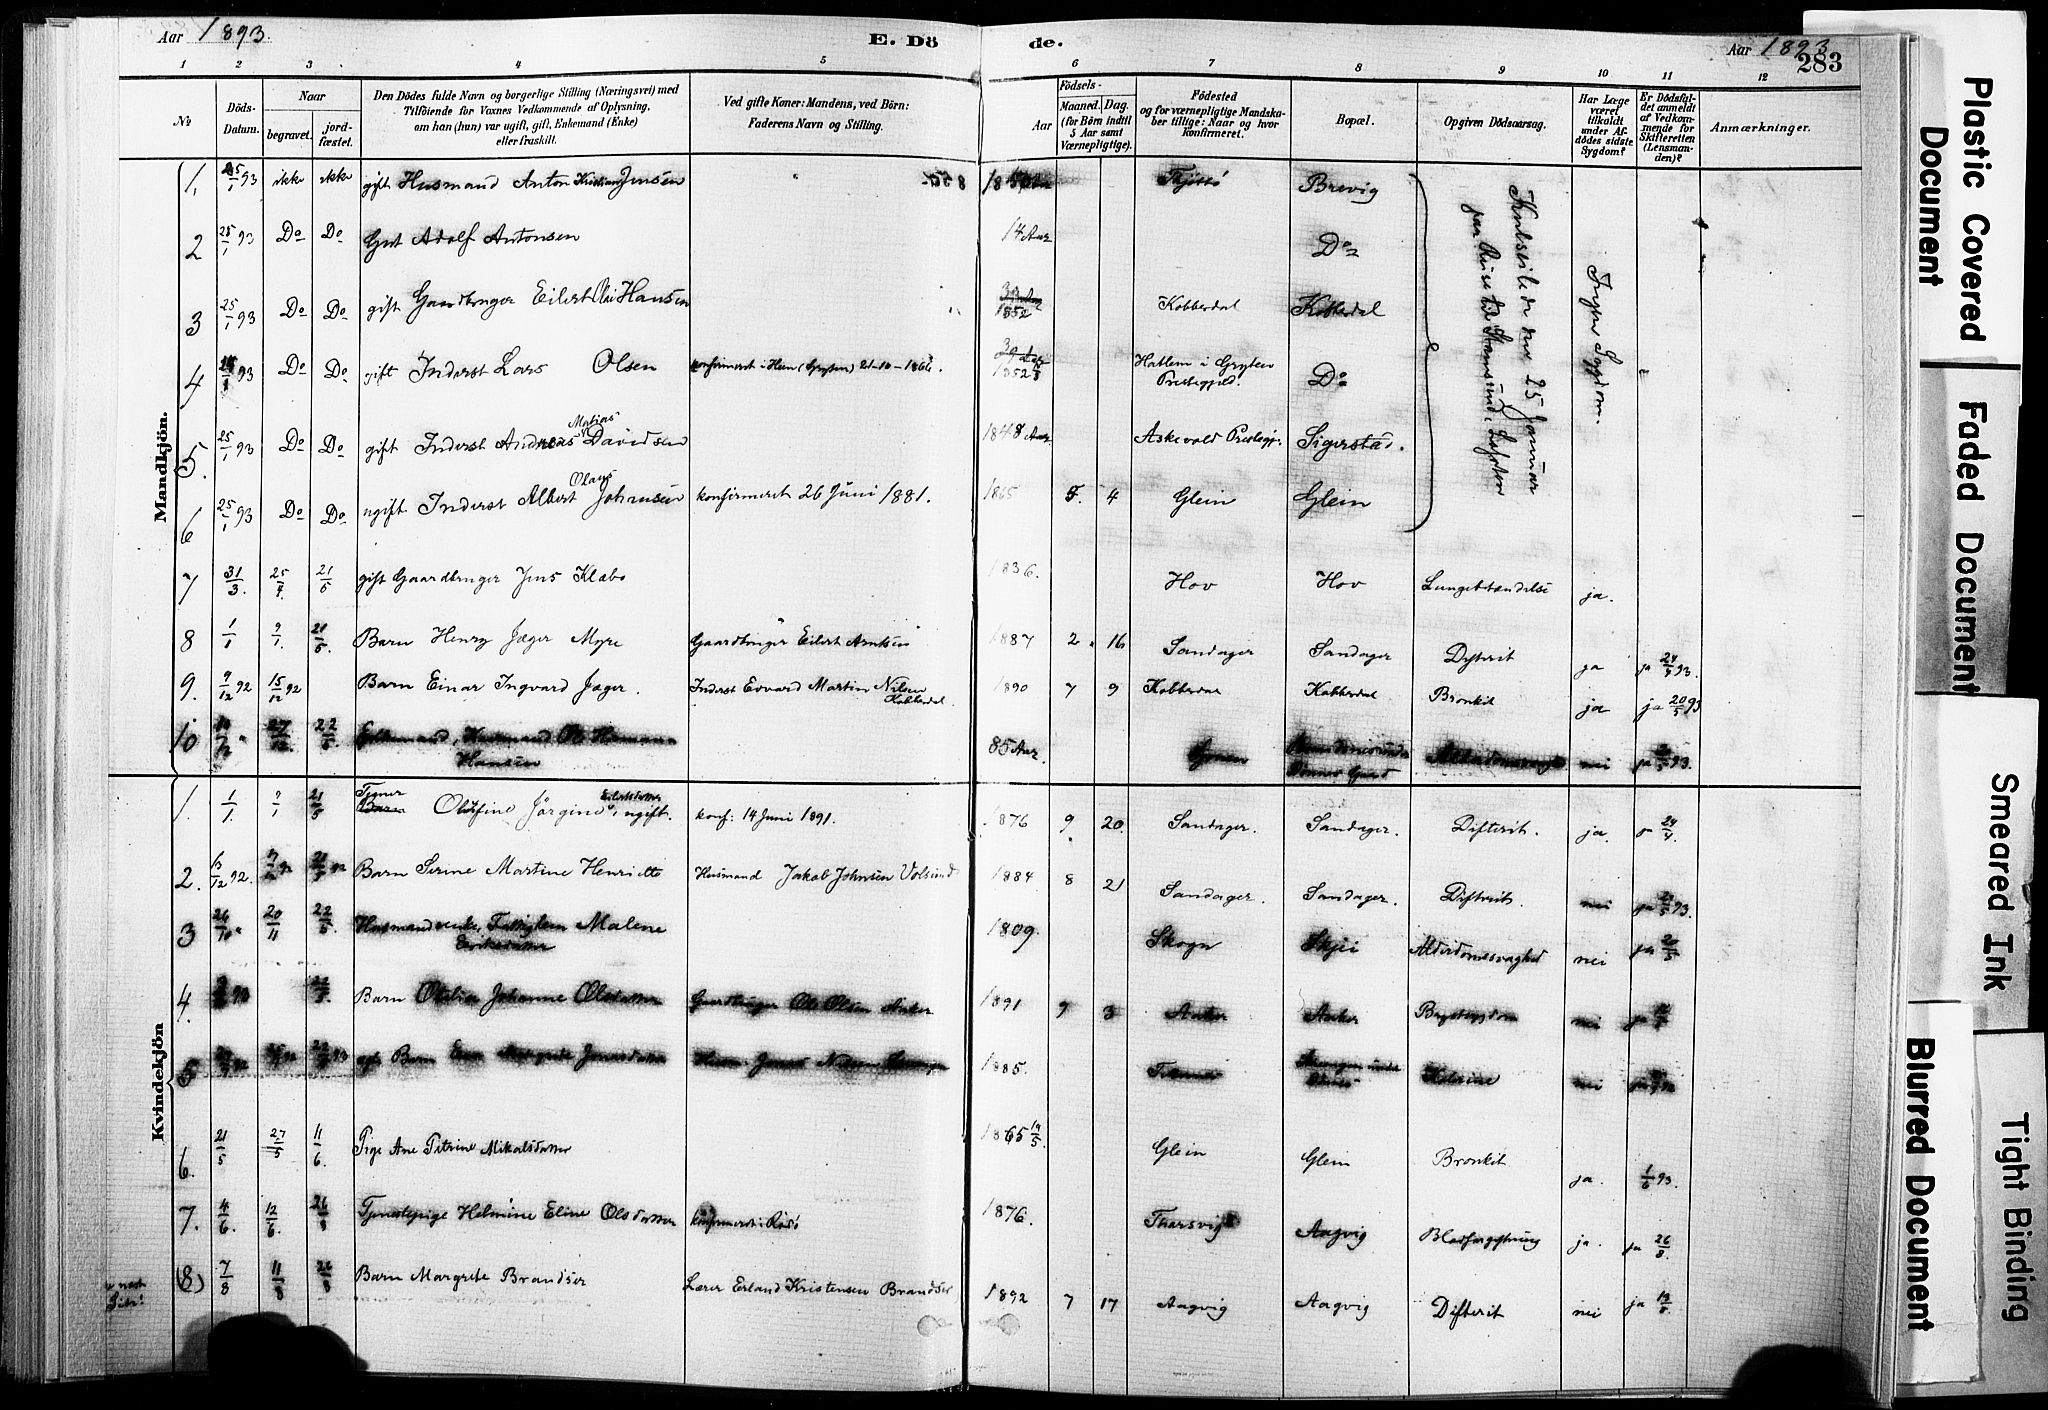 Aar 1893. E. Dö de. Aar 1893
283
1 2 3 4 5 6 7 8 9 10 11 12
No
Döds-Datum.
Naar
begravet.
jordfæstet.
Den Dödes fulde Navn og borgerlige Stilling (Næringsvei) med
Tilföiende for Voxnes Vedkommende af Oplysning,
om han (hun) var ugift, gift, Enkemand (Enke)
eller fraskilt.
Ved gifte Koner: Mandens, ved Börn:
Faderens Navn og Stilling.
Födsels-
Aar
Maaned. Dag.
(for Börn indtil
5 Aar samt
Værnepligtige).
Födested
og for værnepligtige Mandska-
ber tillige: Naar og hvor
konfirmeret.
Bopæl.
Opgiven Dödsaarsag.
Har Læge
været
tilkaldt
under Af-
dödes sidste
Sygdom?
Er Dödsfal-
det anmeldt
af Vedkom-
mende for
Skifteretten
(Lensman-
den)?
Anmærkninger.
Mandkjön.
1, 25/1 93 ikke ikke gift Husmand Anton Kristian Jensen 1850 Tjöttö Brevig
2 25/1 93 Do Do Gut Adolf Antonsen 14 Aar Do
3 25/1 93 Do Do gift Gaardbruger Eilert Olai Hansen 1852 Kobberdal Kobberdal
4 93 Do Do gift Inderst Lars Olsen konfirmeret i Hen (Grytten) 21-10-1866. 1852 Hatlem i Grytten Prestegjeld. Do
5. 25/1 93 Do Do gift Inderst Andreas Matias Davidsen 1848 Aar Askevold Prestegj. Sigerstad.
6 25/1 93 Do Do ugift Inderst Albert Olaus Johansen konfirmeret 26 Juni 1881. 1865 5. 4 Glein Glein
Kulseilede den 25 Januar
paa Reise til Stamsund i Lofoten
Ingen Sygdom.
7 31/3. 25/4. 21/5 gift Gaardbruger Jens Klæbo 1836. Hov Hov Lungebetændelse ja.
8 1/1 9/1. 21/5. Barn Henry Jæger Myre Gaardbruger Eilert Arntsen 1887 2 16 Sandager Sandager Difterit ja ja 24/4 93.
9. 9/12 92 15/12 92 Barn Einar Ingvard Jæger. Inderst Edvard Martin Nilsen Kobberdal 1890 7 9 Kobberdal Kobberdal Bronkit ja ja 20/5 93
10 27/12 22/5 Husmand Ole Hansen 85 Aar. Alderdomssvaghed nei ja 93.
Kvindekjön
1. 1/1. 9/1 21/5 Barn Olufine Jörgine Eilertsdatter, ugift. konf: 14 Juni 1891. 1876 9 20. Sandager. Sandager. Difterit. ja. ja 24/4.
2. 13/12 92. 92 21/5 Barn Serine Martine Henriette Husmand Jakob Johnsen Volsund 1884 8 21 Sandager. Sandager. Difterit. nei ja 93.
3 26/10 20/11 22/5. Husmandsenke, Fattiglem Malene Eriksdatter 1809. Skogn Skjei Alderdomssvaghed nei ja 20/5
4. 92 22/5 Barn Otilie Johanne Olsdatter Gaardbruger Ole Olsen Anker 1891 9 3 Anker Anker Brystsygdom nei ja
5 92 93 Barn Margrete Jonasdatter Jonas Nilsen 1885. nei
6. 21/5 27/5 11/6 Pige Ane Petrine Mikalsdatter 1865 14/5. Glein Glein Bronkit ja. 1/6 93.
7. 4/6. 12/6. 26/8 Tjenestepige Helmine Eline Olsdatter konfirmeret i Rödö 1876. Thorsvig Aagvig Blodforgiftning ja. ja 26/8.
(8) 7/8 11/8 26/8 Barn Margrete Brandser Lærer Erland Kristensen Brandser 1892 7 17 Aagvig Aagvig Difterit nei ja 13/8.
Plastic Covered Document
Faded Document
Smeared Ink
Tight Binding
Blurred Document